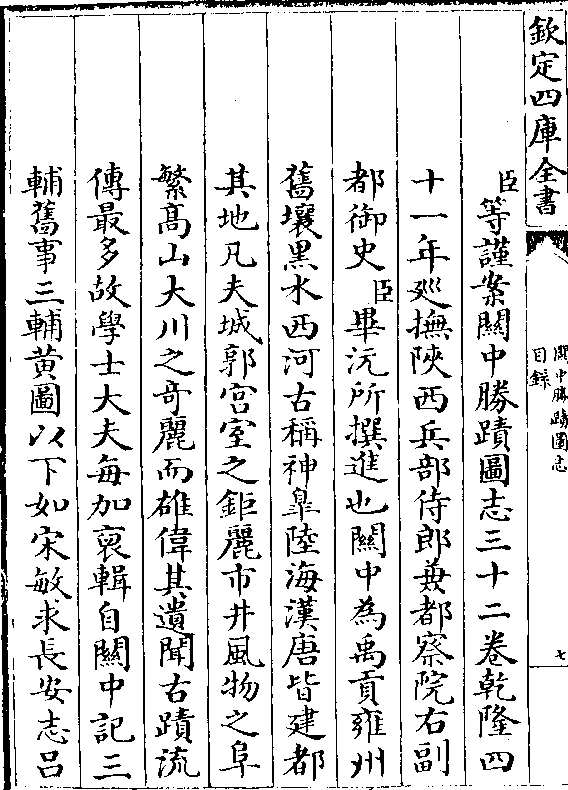 欽定四庫全書
關中勝蹟圖志
目録
七
臣等謹案關中勝蹟圖志三十二卷乾隆四
十一年廵撫陜西兵部侍郎兼都察院右副
都御史臣畢沅所撰進也關中為禹貢雍州
舊壤黑水西河古稱神臯陸海漢唐皆建都
其地凡夫城郭宫室之鉅麗市井風物之阜
繁髙山大川之竒麗而雄偉其遺聞古蹟流
傳最多故學士大夫每加裒輯自關中記三
輔舊事三輔黄圖以下如宋敏求長安志吕